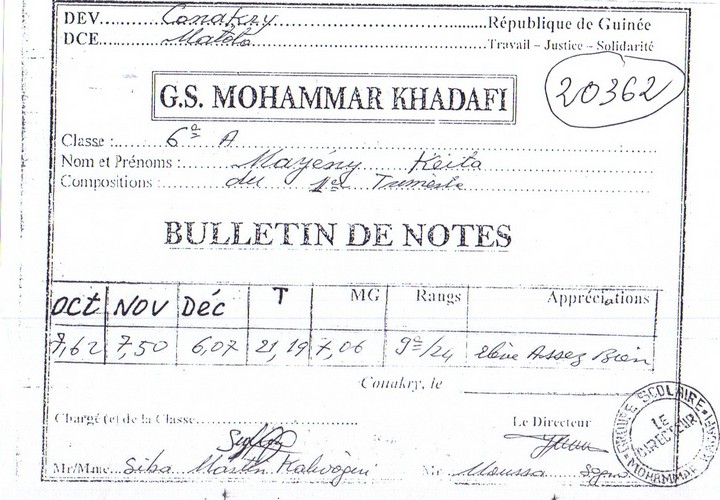 DEV.....Conakry.....République de Guinée
DCE.....Matoto.....Travail – Justice – Solidarité
G.S. MOHAMMAR KHADAFI
20362
Classe :.....6e A
Nom et Prénoms :.....Mayény Keita
Compositions :.....du 1er Trimestre
BULLETIN DE NOTES
Oct NOV Déc T MG Rangs Appréciations
7,62 7,50 6,07 21,19 7,06 9e/24 élève Assez Bien
Conakry, le
Chargé (e) de la Classe..... Le Directeur
Mr/Mme...Siba Martin Mr Moussa
GROUPE SCOLAIRE
LE DIRECTEUR